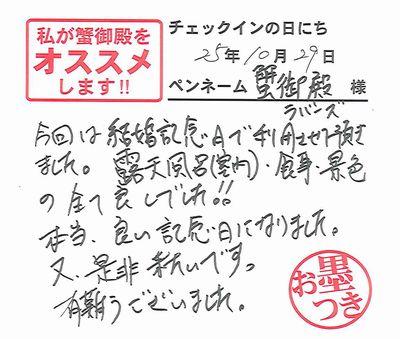 私が蟹御殿を
オススメ
します!!
チェックインの日にち
25年10月29日
ペンネーム 蟹御殿ラバーズ 様
今回は結婚記念日で利用させて頂き
ました。露天風呂(室内)・食事・景色
の全て良しでした!!
本当、良い記念日になりました。
又、是非来たいです。
有難うございました。
お墨つき